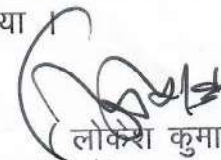 या ।
( लोकेश कुमा